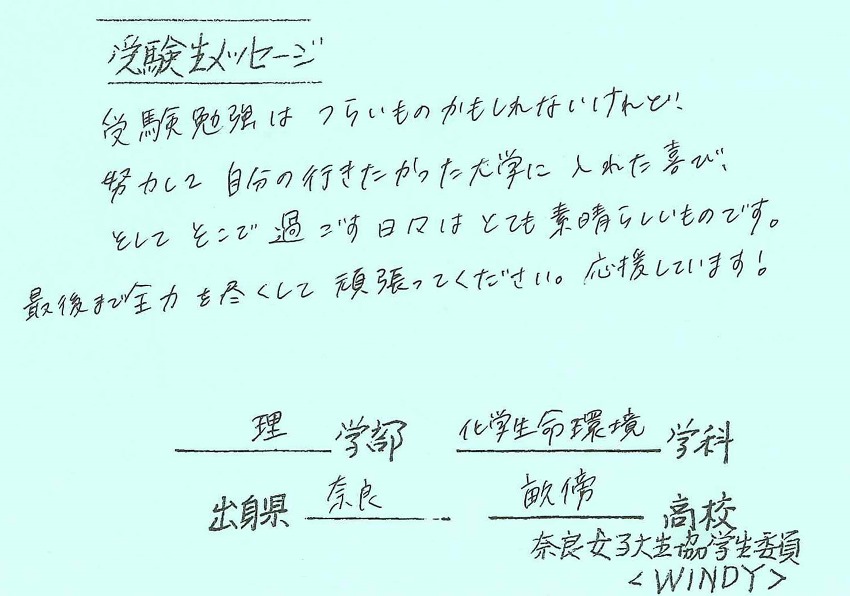 受験生メッセージ
受験勉強は つらいものかもしれないけれど、
努力して 自分の行きたかった大学に入れた喜び、
そして そこで 過ごす日々は とても 素晴らしいものです。
最後まで全力を尽くして 頑張ってください。応援しています!
理 学部 化学生命環境 学科
出身県 奈良 畝傍 高校
奈良女子大生協学生委員
<WINDY>